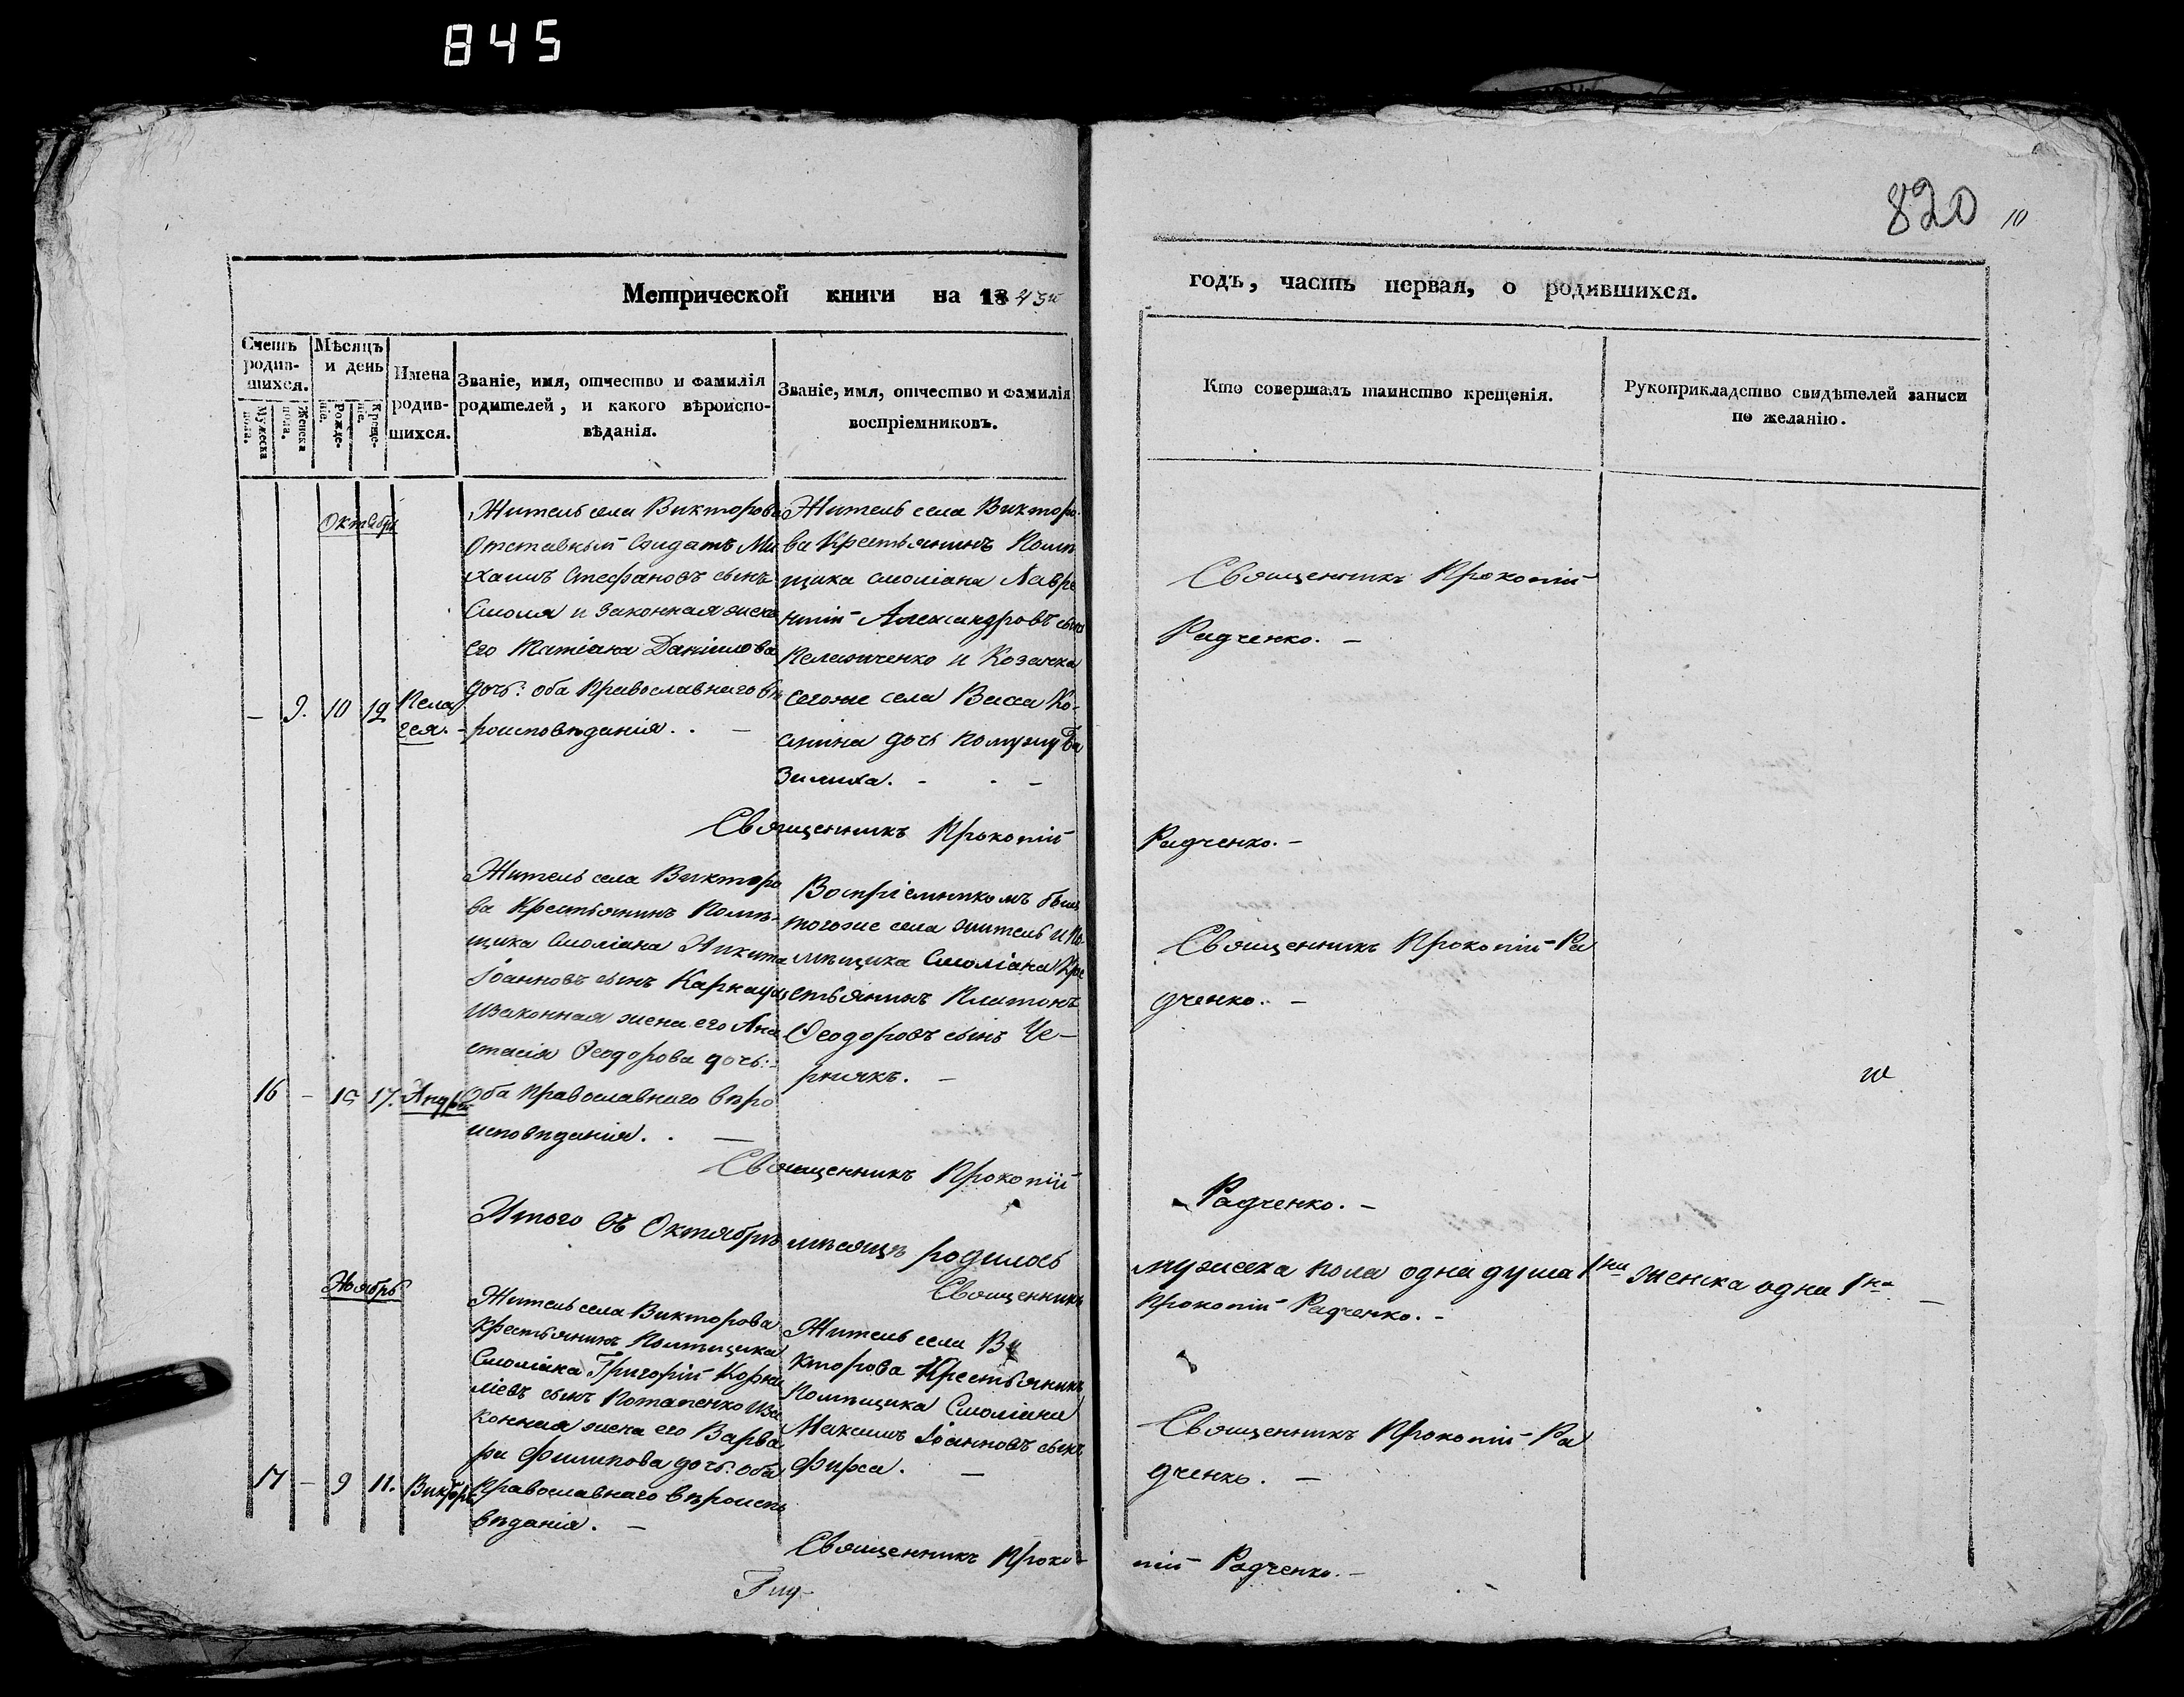 845
820 10
Метрической книги на 1843й
годъ, часть первая, о родившихся.
Счетъ родив-шихся.
Мужеска пола.
Женска пола.
Мѣсяцъ и день
Рожде-нie.
Креще-нie.
Имена родив-шихся.
Званіе, имя, отчество и фамилія родителей, и какого вѣроиспо-вѣданія.
Званіе, имя, отчество и фамилія воспріемниковъ.
Кто совершалъ таинство крещенія.
Рукоприкладство свидѣтелей записи по желанію.
Октябрь
– 9. 10 12 Пела
гея. –
Житель села Викторова
Отставный Солдатъ Ми
хаилъ Стефановъ сынъ
Смоля и законная жена
его Татіана Даніилова
дочь: оба Православнаго вѣ
роисповѣданія. . –
Житель села Викторо-
ва Крестьянинъ Помѣ
щика Смоліана Лавре
нтій Александровъ сынъ
и Козачка
тогоже села Васса Ко-
смина дочь по мужу Ба
зилиха. – . –
Священникъ Прокопій
Радченко. –
Священникъ Прокопій
Радченко. –
16 – 15 17. Андрей
Житель села Викторо
ва Крестьянинъ Помѣ-
щика Смоліана Никита
Іоанновъ сынъ
изаконная жена его Ана
стасія Ѳеодорова дочь: –
Оба Православнаго вѣро
исповѣданія. . –
Воспріемникомъ былъ
тогоже села житель и По-
мѣщика Смоліана Кре
стьянинъ Платонъ
Ѳеодоровъ сынъ Че–
рнякъ. –
Священникъ Прокопій Ра
дченко. –
Священникъ Прокопій
Радченко. –
Итого въ Октябрѣ мѣсяцѣ родилось
мужеска пола одна душа 1на женска одна 1на –
Священникъ
Прокопій Радченко. –
Ноябрь
17 – 9 11. Викторъ
Житель села Викторова
Крестьянинъ Помѣщика
Смоліана Григорій Корни
ліевъ сынъ Потапенко иза
конная жена его Варва
ра Филипова дочь: оба
Православнаго вѣроиспо
вѣданія. –
Житель села Ви
кторова Крестьянинъ
Помѣщика Смоліана
Максимъ Іоанновъ сынъ
Фирса. –
Священникъ Прокопій Ра
дченко. –
Священникъ Проко-
пій Радченко. –